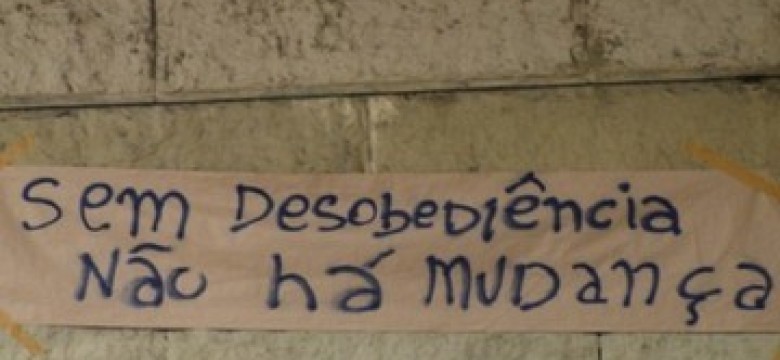 Sem Desobediência
Não há MUDança